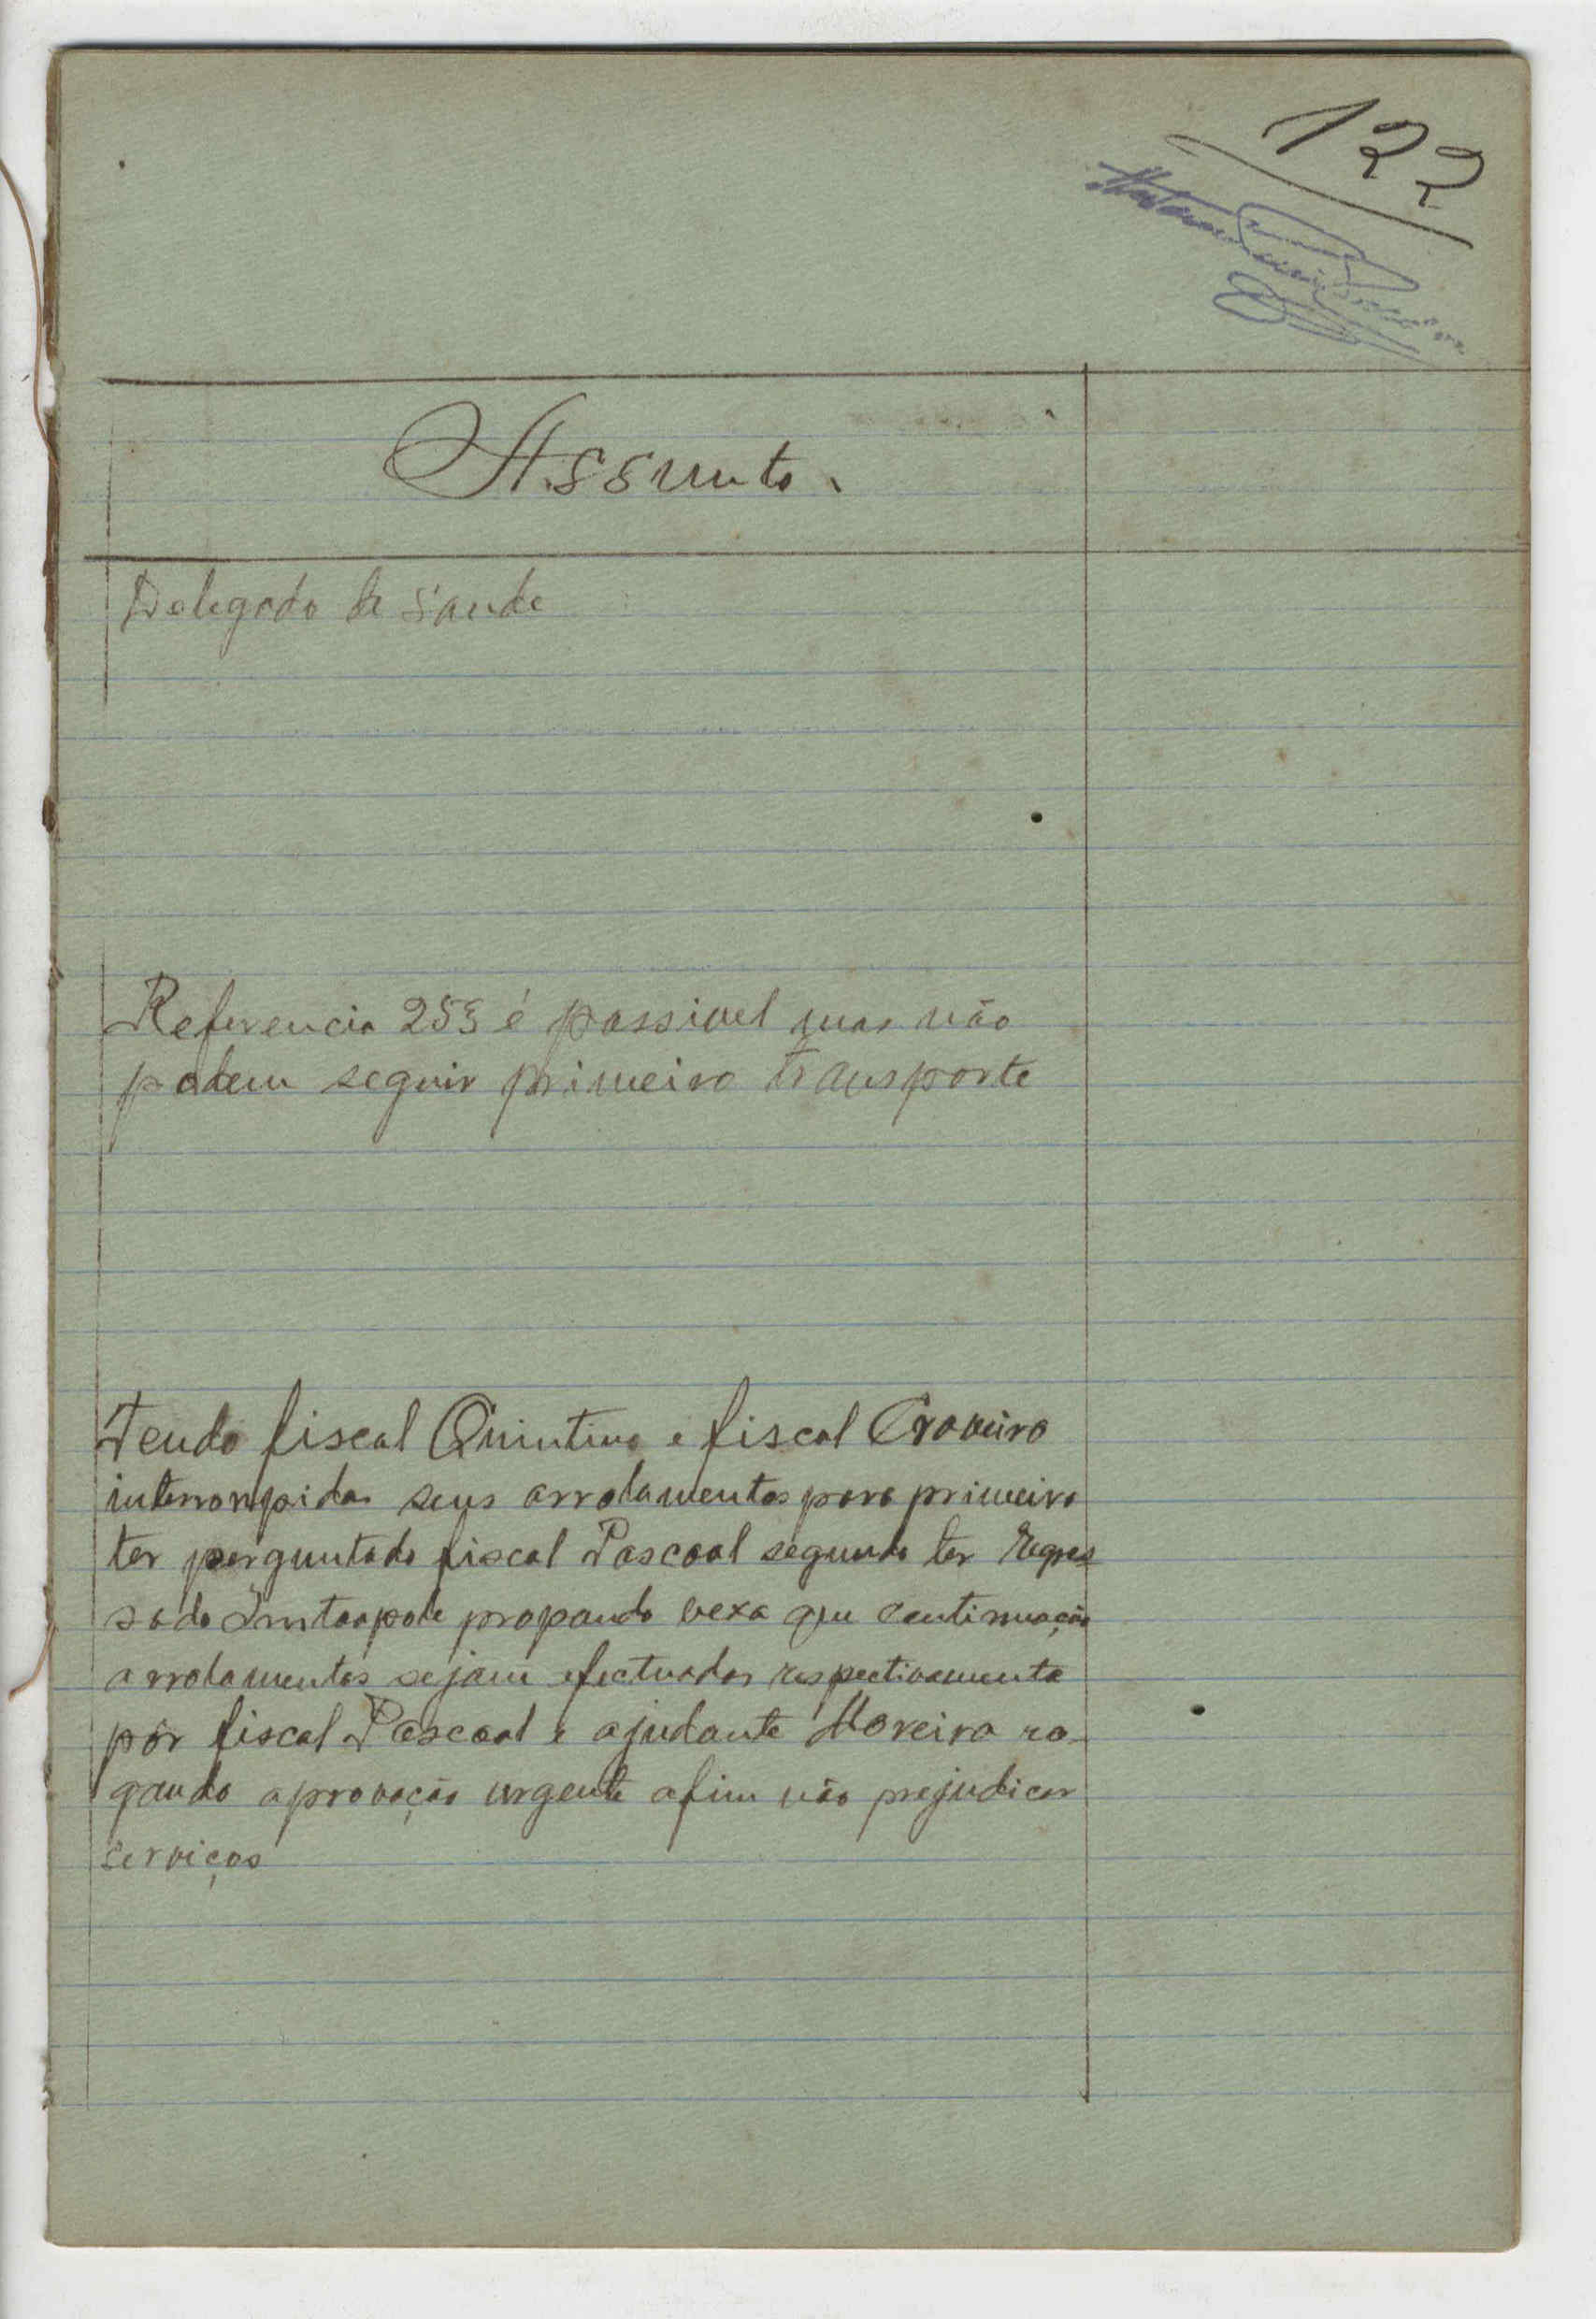 122
Assunto.
Delegado de Saude
Referencia 253 é possivel mas não
podem seguir primeiro transporte
Tendo fiscal Quintino e fiscal Craveiro
interrompidos seus arrolamentos para primeiro
ter perguntado fiscal Pascoal segundo ter regres
sado proponho vexa que continuação
arrolamentos sejam efectuados respectivamente
por fiscal Pascoal e ajudante Moreira ro-
gando aprovação urgente afim não prejudicar
serviços